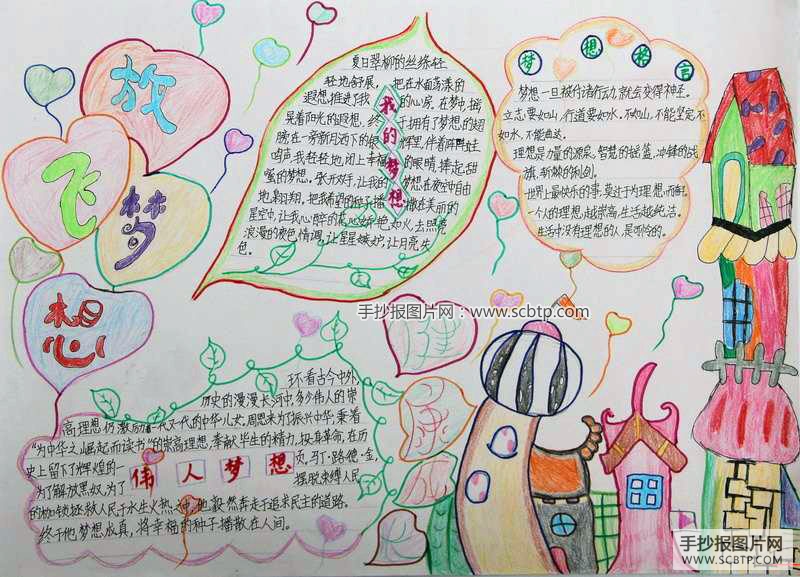 放
飞
梦
想
夏日翠柳的丝绦轻
轻地舒展，把在水面荡漾的
遐想推进了我的心房，在梦中摇
晃着阳光的遐想，终于拥有了梦想的翅
膀在一旁新月洒下的银辉里，伴着阵阵蛙
鸣声，我轻轻地闭上幸福的眼睛，捧起甜
蜜的梦想，张开双手，让我的梦想在夜空自由
地翱翔，把我希望的种子播撒在美丽的
星空中，让我心醉的花心娇艳如火，去照亮
浪漫的夜色情调，让星星嫉妒，让月亮失
色。
我的梦想
梦想格言
梦想一旦被付诸行动，就会变得神圣。
立志要如山，行道要如水。不如山，不能坚定，不
如水，不能曲达。
理想是力量的源泉、智慧的摇篮、冲锋的战
旗、斩棘的利剑。
世界上最快乐的事，莫过于为理想而斗。
一个人的理想越崇高，生活越纯洁。
生活中没有理想的人，是可怜的。
手抄报图片网：www.scbtp.com
环看古今中外，
历史的漫漫长河中，多少伟人的崇
高理想仍激励着一代又一代的中华儿女，周恩来为了振兴中华，秉着
“为中华之崛起而读书”的崇高理想，奉献毕生的精力，投身革命，在历
史上留下了辉煌的一页，马丁·路德·金，
为了解放黑奴，为了摆脱束缚人民
的枷锁，拯救人民于水生火热之中，他毅然奔走于追求民主的道路。
终于他梦想成真，将幸福的种子播散在人间。
伟人梦想
手抄报图片网
WWW.SCBTP.COM